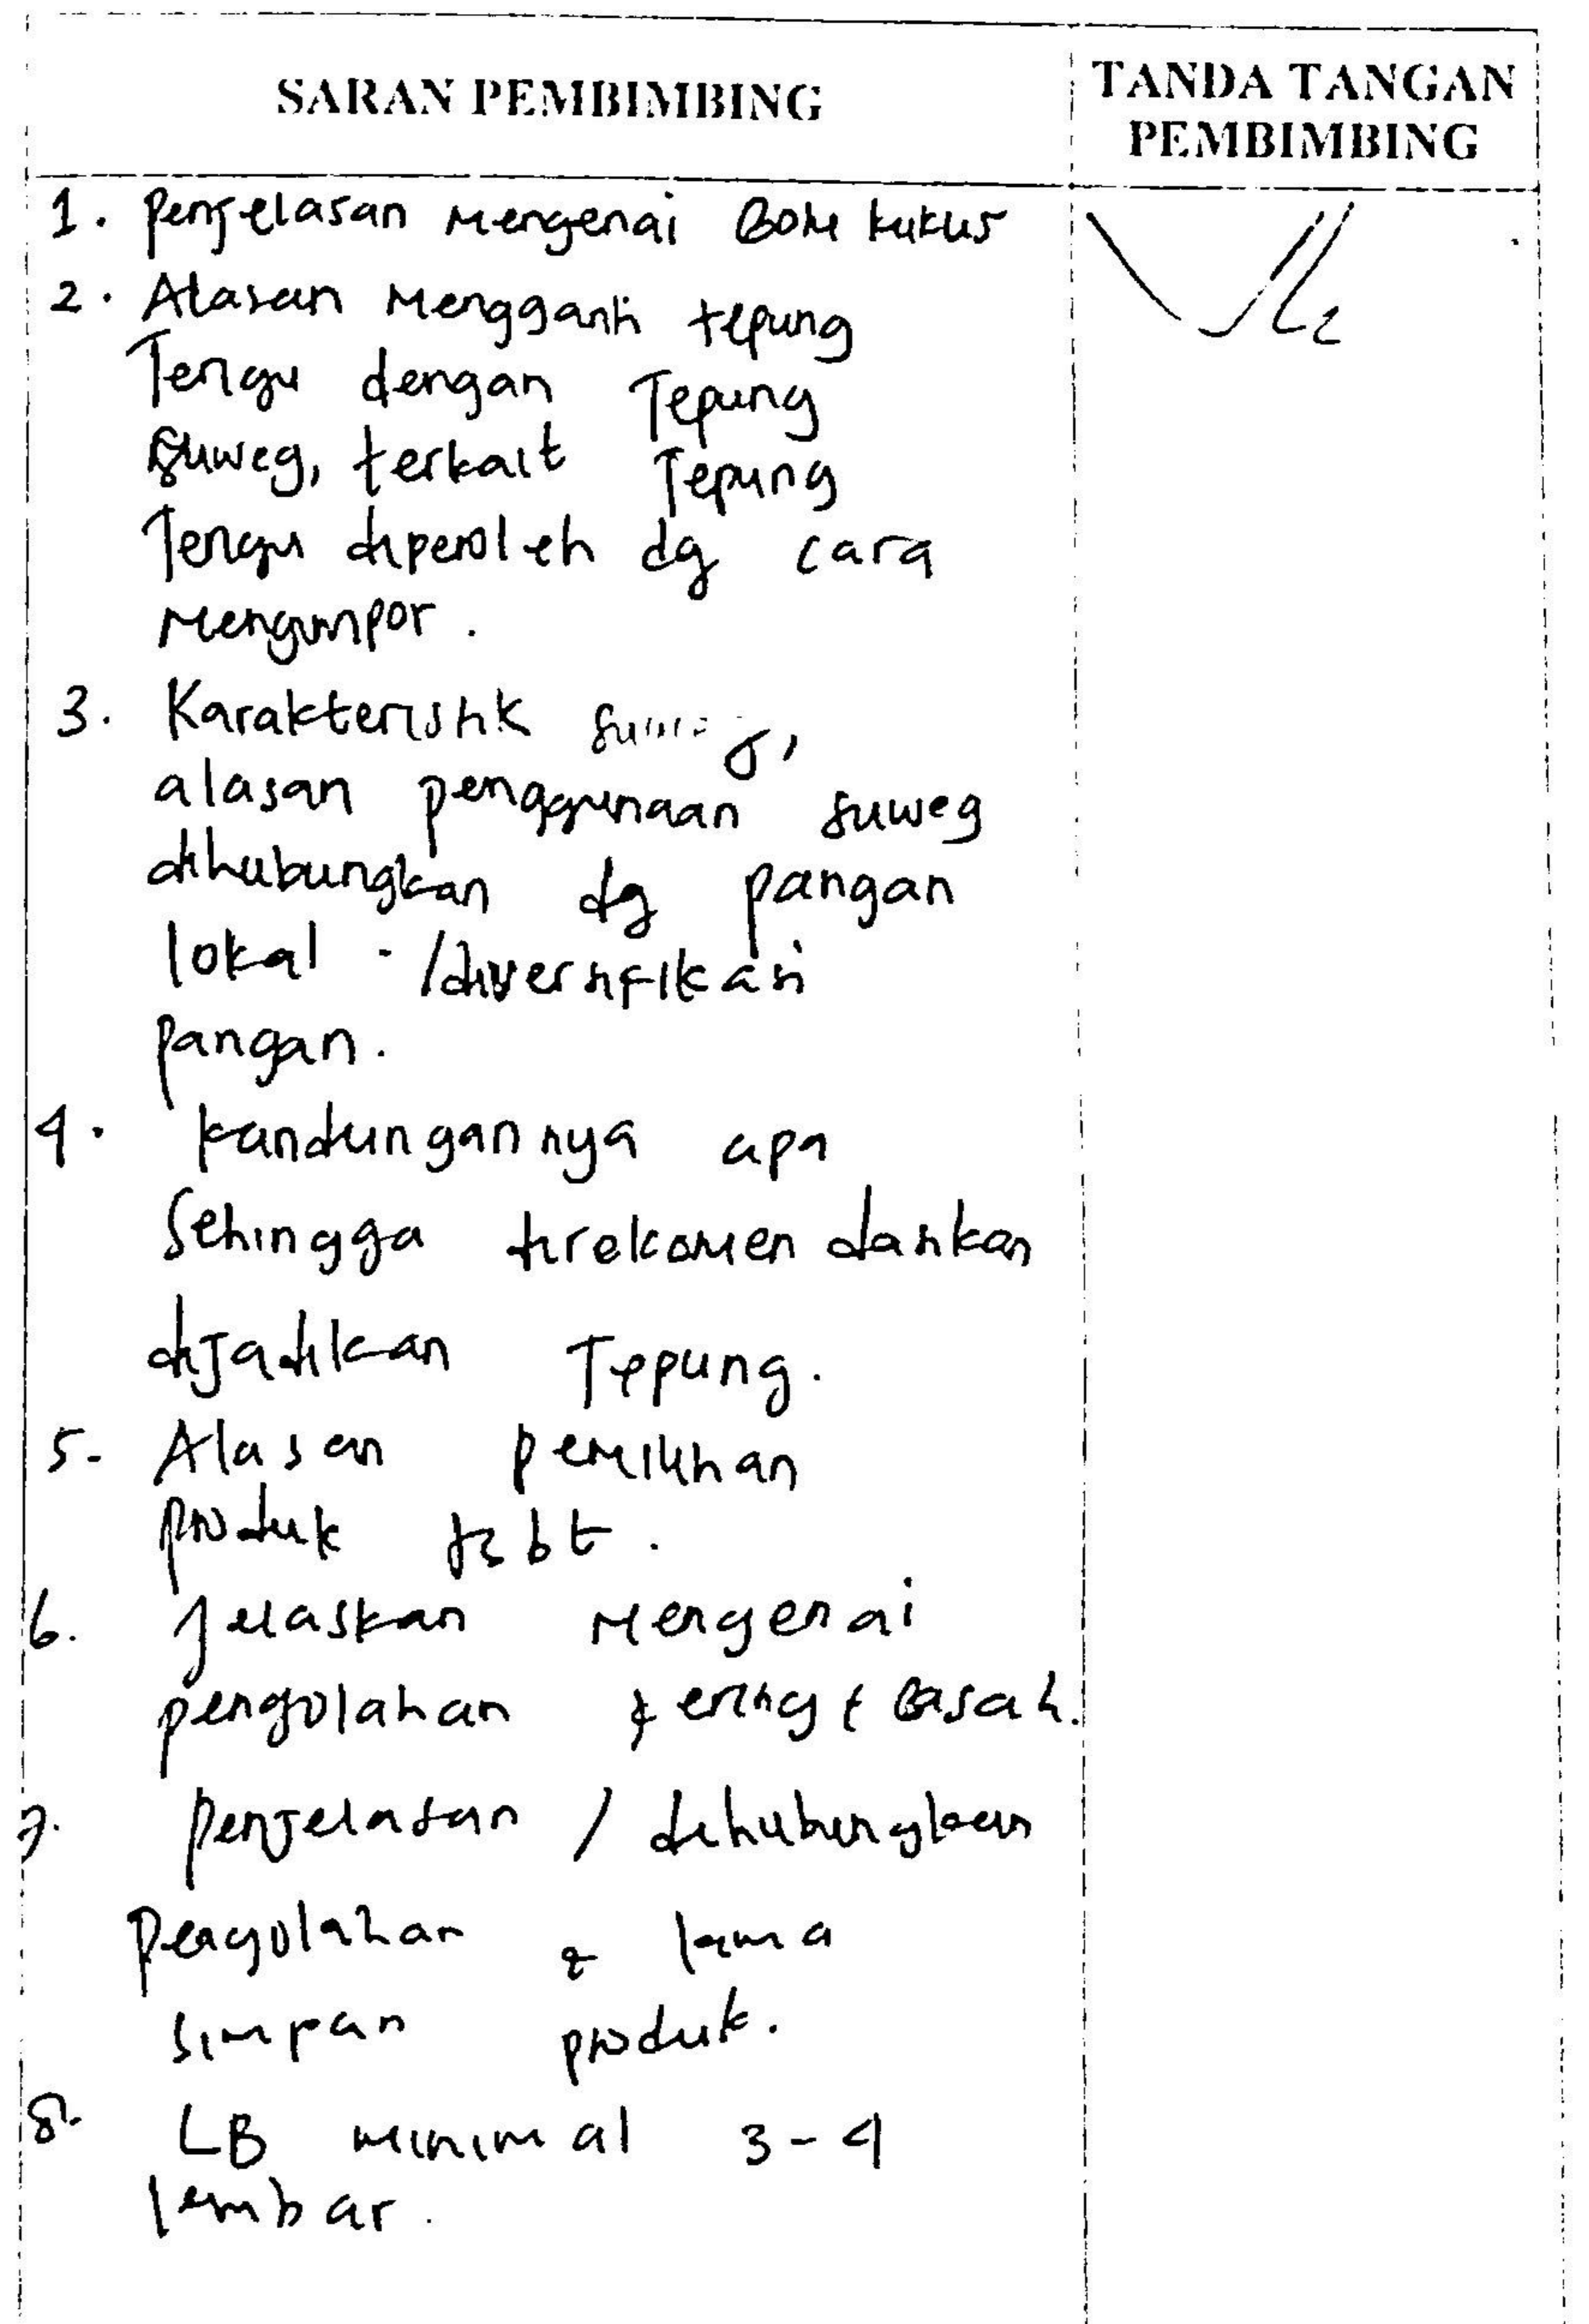 SARAN PEMBIMBING
TANDA TANGAN
PEMBIMBING
1. Penjelasan mengenai Bolu kukus
2. Alasan mengganti tepung
Terigu dengan Tepung
Suweg, terkait Tepung
Terigu diperoleh dg cara
mengimpor.
3. Karakteristik suweg,
alasan penggunaan suweg
dihubungkan dg pangan
lokal /diversifikasi
pangan.
4. kandungannya apa
Sehingga direkomendasikan
dijadikan Tepung.
5. Alasan pemilihan
produk tsbt.
6. Jelaskan mengenai
pengolahan kering & Basah.
7. Penjelasan / dihubungkan
Pengolahan & lama
simpan produk.
8. LB minimal 3-4
lembar.